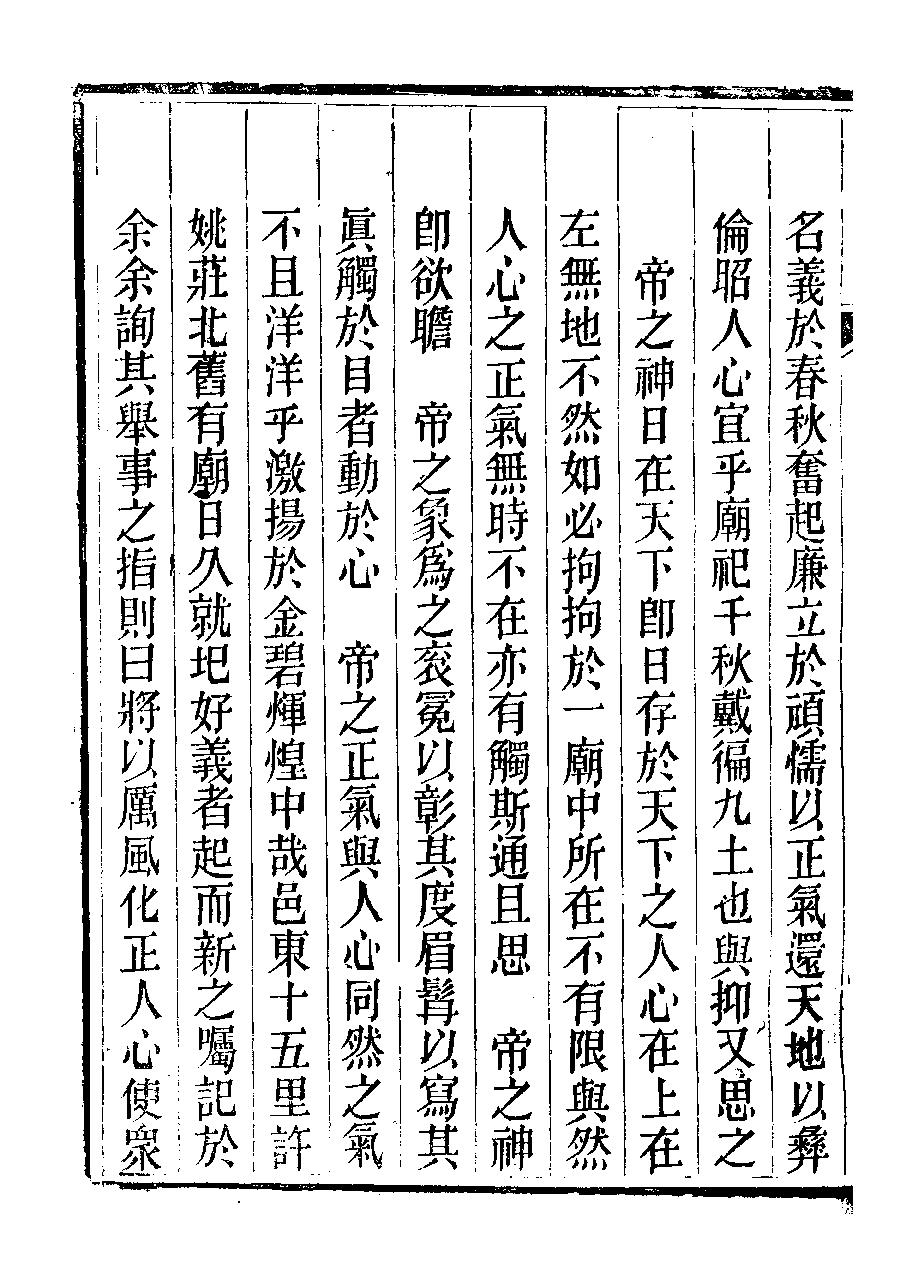 名義於春秋奮起廉立於頑懦以正氣還天地以彝
倫昭人心宜乎廟祀千秋戴徧九土也與抑又思之
帝之神日在天下卽日存於天下之人心在上在
左無地不然如必拘拘於一廟中所在不有限與然
人心之正氣無時不在亦有觸斯通且思　帝之神
卽欲瞻　帝之象爲之衮冕以彰其度眉髯以寫其
眞觸於目者動於心　帝之正氣與人心同然之氣
不且洋洋乎激揚於金碧煇煌中哉邑東十五里許
姚莊北舊有廟日久就圯好義者起而新之囑記於
余余詢其舉事之指則曰將以厲風化正人心使衆